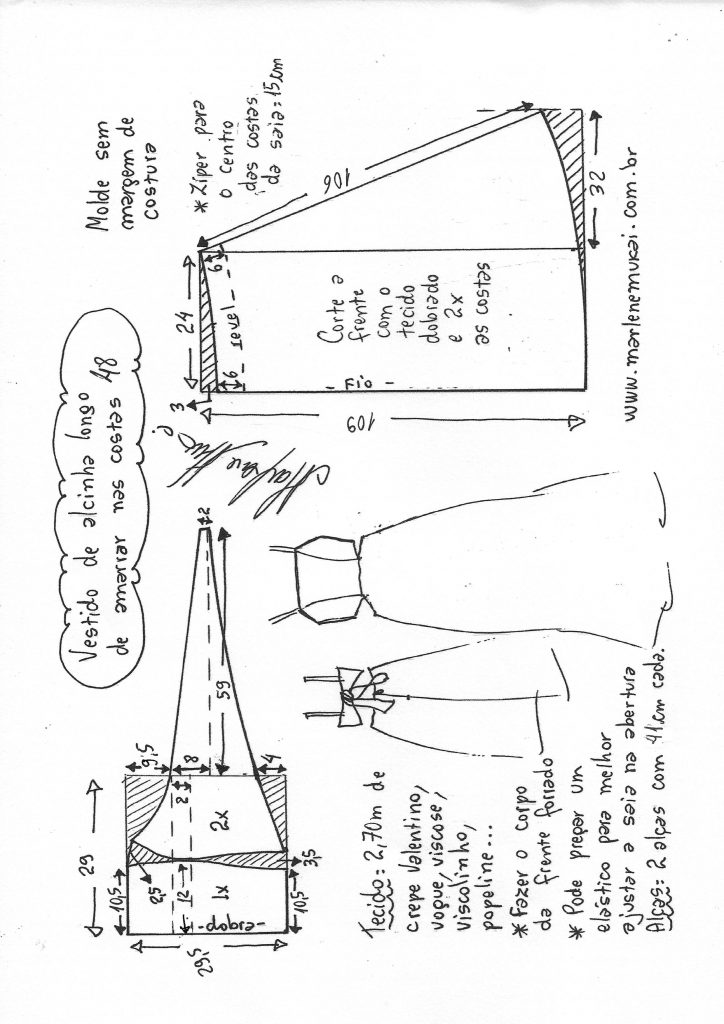 Vestido de alcinha longo
de amarrar nas costas 48
Molde sem
margem de
costura
* Zíper para
o centro
das costas
da saia: 15cm
29
10,5
2,5
9,5
8
2
4
59
2
12
3,5
10,5
29,5
-dobra-
1x
2x
3
24
6
6
- revel -
106
32
109
- Fio -
Corte a
frente
com o
tecido
dobrado
e 2x
as costas
www.marlenemukai.com.br
Tecido: 2,70m de
crepe Valentino,
vogue, viscose,
viscolinho,
popeline...
* Fazer o corpo
da frente forrado
* Pode pregar um
elástico para melhor
ajustar a saia na abertura
Alças: 2 alças com 41cm cada.